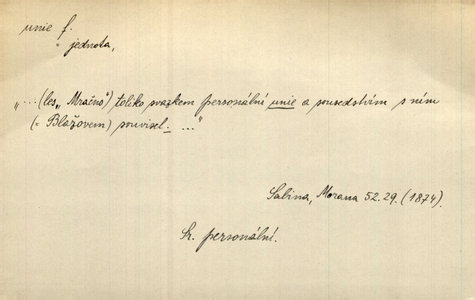 unie f.
" jednota,
"... (les „Mračno“) toliko svazkem personální unie a sousedstvím s ním
(= Blažovem) souvisel. ..."
Sabina, Morana 52.29. (1874).
Sr. personální.